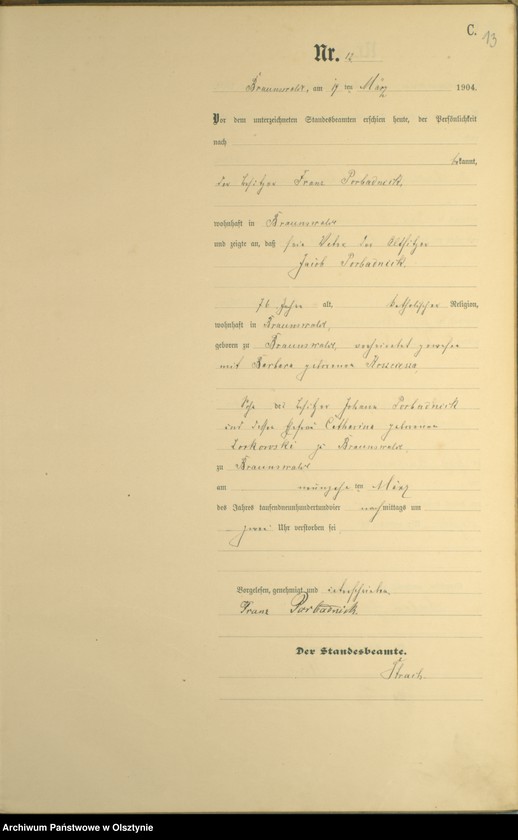 C.
13
Nr. 12
Braunswalde, am 19 ten März 1904.
Vor dem unterzeichneten Standesbeamten erschien heute, der Persönlichkeit
nach
bekannt,
der Besitzer Franz Porbadnick,
wohnhaft in Braunswalde
und zeigte an, daß sein Vater der Altsitzer
Jacob Porbadnick
76 Jahre alt, katholischer Religion,
wohnhaft in Braunswalde,
geboren zu Braunswalde, verheirathet gewesen
mit Barbara geborenen
Sohn des Besitzer Johann Porbadnick
und dessen Ehefrau Catharina geborenen
Lorkowski zu Braunswalde
zu Braunswalde
am neunzehn ten März
des Jahres tausendneunhundertundvier nachmittags um
zwei Uhr verstorben sei
Vorgelesen, genehmigt und unterschrieben
Franz Porbadnick.
Der Standesbeamte.
Archiwum Państwowe w Olsztynie